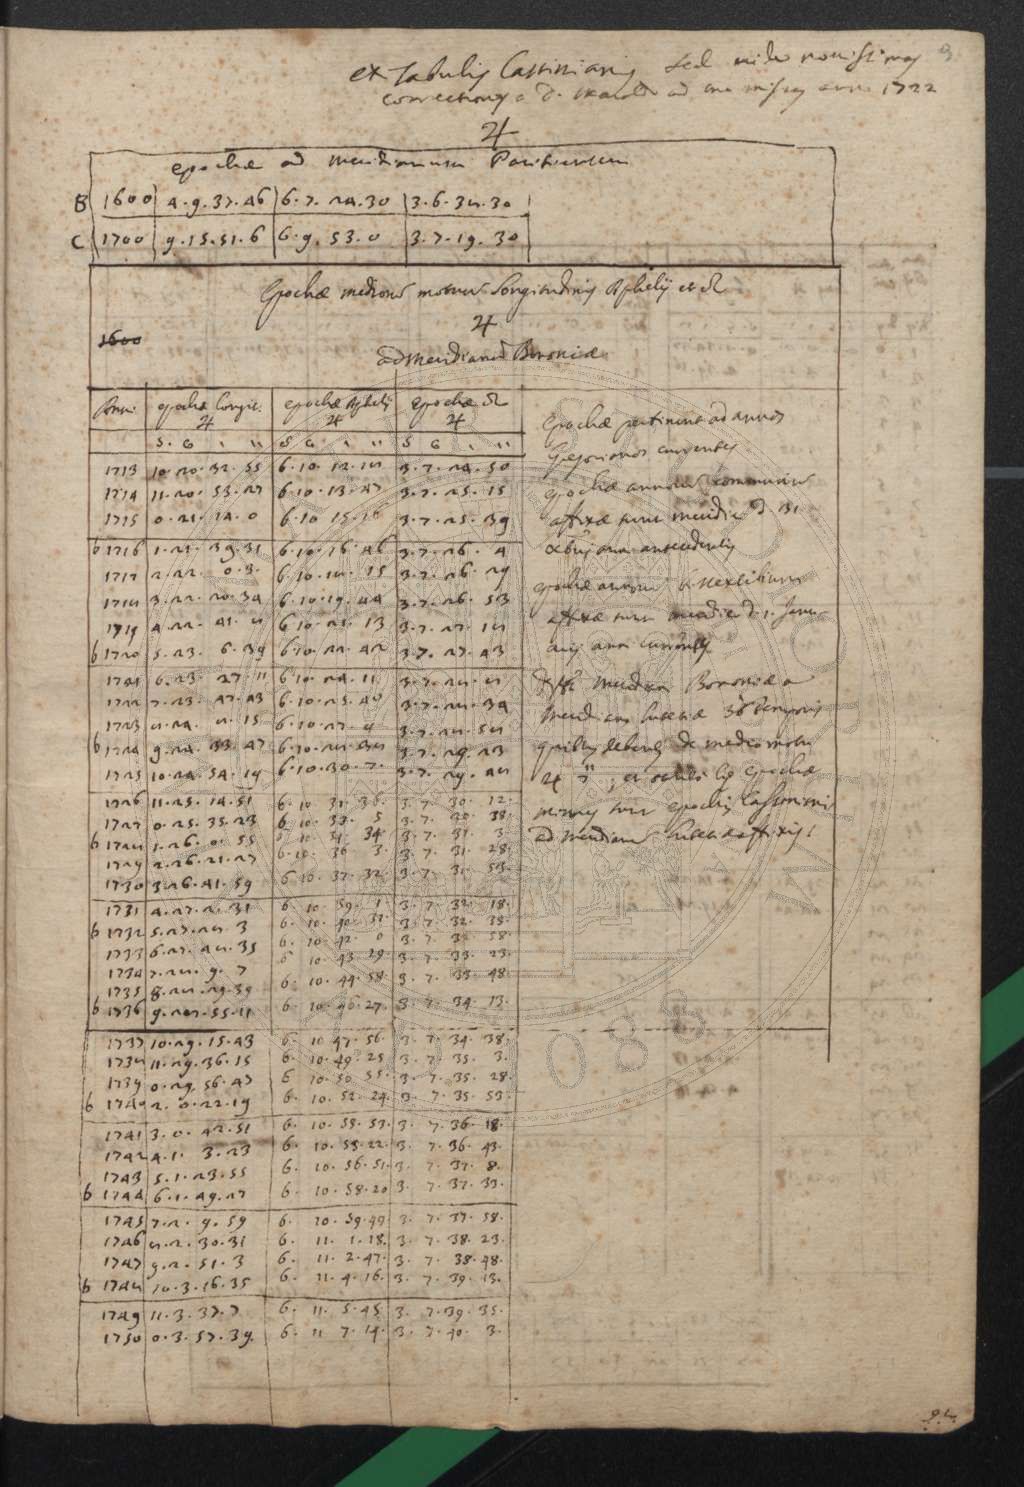 ex Tabulis Cassinianis sed vide novissimas
correctiones a D. Maraldo ad me missas anno 1722
♃
epochæ ad meridianum Parisiensem
B 1600 4.9.37.46 6.7.24.30 3.6.38.30
C 1700 9.15.51.6 6.9.53.0 3.7.19.30
Epochæ mediorum motuum Longitudinis Aphelij et ☊
♃
1600
ad meridianum Bononiæ
Anni epochæ Longit. ♃ epochæ Aphelij ♃ epochæ ☊ ♃
S. G. ' '' S G ' '' S G ' ''
1713 10.20.32.55 6.10.12.18 3.7.24.50
1714 11.20.53.27 6.10.13.47 3.7.25.15
1715 0.21.14.0 6.10.15.16 3.7.25.39
b 1716 1.21.39.31 6.10.16.46 3.7.26.4
1717 2.22.0.3. 6.10.18.15 3.7.26.29
1718 3.22.20.34 6.10.19.44 3.7.26.53
1719 4.22.41.8 6.10.21.13 3.7.27.18
b 1720 5.23.6.39 6.10.22.42 3.7.27.43
1721 6.23.27.11 6.10.24.11 3.7.28.8
1722 7.23.47.43 6.10.25.40 3.7.28.34
1723 8.24.8.15 6.10.27.9 3.7.28.58
b 1724 9.24.33.47 6.10.28.38 3.7.29.23
1725 10.24.54.19 6.10.30.7. 3.7.29.48
1726 11.25.14.51 6.10.31.36. 3.7.30.12.
1727 0.25.35.23 6.10.33.5 3.7.30.38.
b 1728 1.26.0.55 6.10.34.34. 3.7.31.3
1729 2.26.21.27 6.10.36.3. 3.7.31.28.
1730 3.26.41.59 6.10.37.32. 3.7.31.53.
1731 4.27.2.31 6.10.39.1. 3.7.32.18.
b 1732 5.27.28.3 6.10.40.31. 3.7.32.35.
1733 6.27.48.35 6.10.42.0 3.7.32.58.
1734 7.28.9.7 6.10.43.29. 3.7.33.23.
1735 8.28.29.39 6.10.44.58. 3.7.33.48.
b 1736 9.28.55.11 6.10.46.27. 3.7.34.13.
1737 10.29.15.43 6.10.47.56. 3.7.34.38.
1738 11.29.36.15 6.10.49.25 3.7.35.3.
1739 0.29.56.47 6.10.50.55. 3.7.35.28.
b 1740 2.0.22.19 6.10.52.24. 3.7.35.53.
1741 3.0.42.51 6.10.53.53. 3.7.36.18.
1742 4.1.3.23 6.10.55.22. 3.7.36.43.
1743 5.1.23.55 6.10.56.51. 3.7.37.8.
b 1744 6.1.49.27 6.10.58.20 3.7.37.33.
1745 7.2.9.59 6.10.59.49 3.7.37.58.
1746 8.2.30.31 6.11.1.18. 3.7.38.23.
1747 9.2.51.3 6.11.2.47. 3.7.38.48.
b 1748 10.3.16.35 6.11.4.16. 3.7.39.13.
1749 11.3.37.7 6.11.5.45 3.7.39.35.
1750 0.3.57.39. 6.11 7.14. 3.7.40.3.
Epochæ pertinent ad annos
Gregorianos currentes
epochæ annorum communium
affixæ sunt meridiei d. 31
Xbris anni antecedentis
epochæ annorum bissextilium
affixæ sunt meridiei d. 1. Janu
arij anni currentis
meridies Bononiæ a
meridiano Lutetiæ 36' temporis
quibus debentur de medio motu
♃ 7'' epochæ
minores sunt epochis Cassinianis
ad meridianum Lutetiæ affixis.